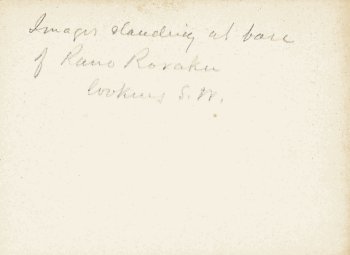 Images standing at base
of Rano Roraku
looking S.W.